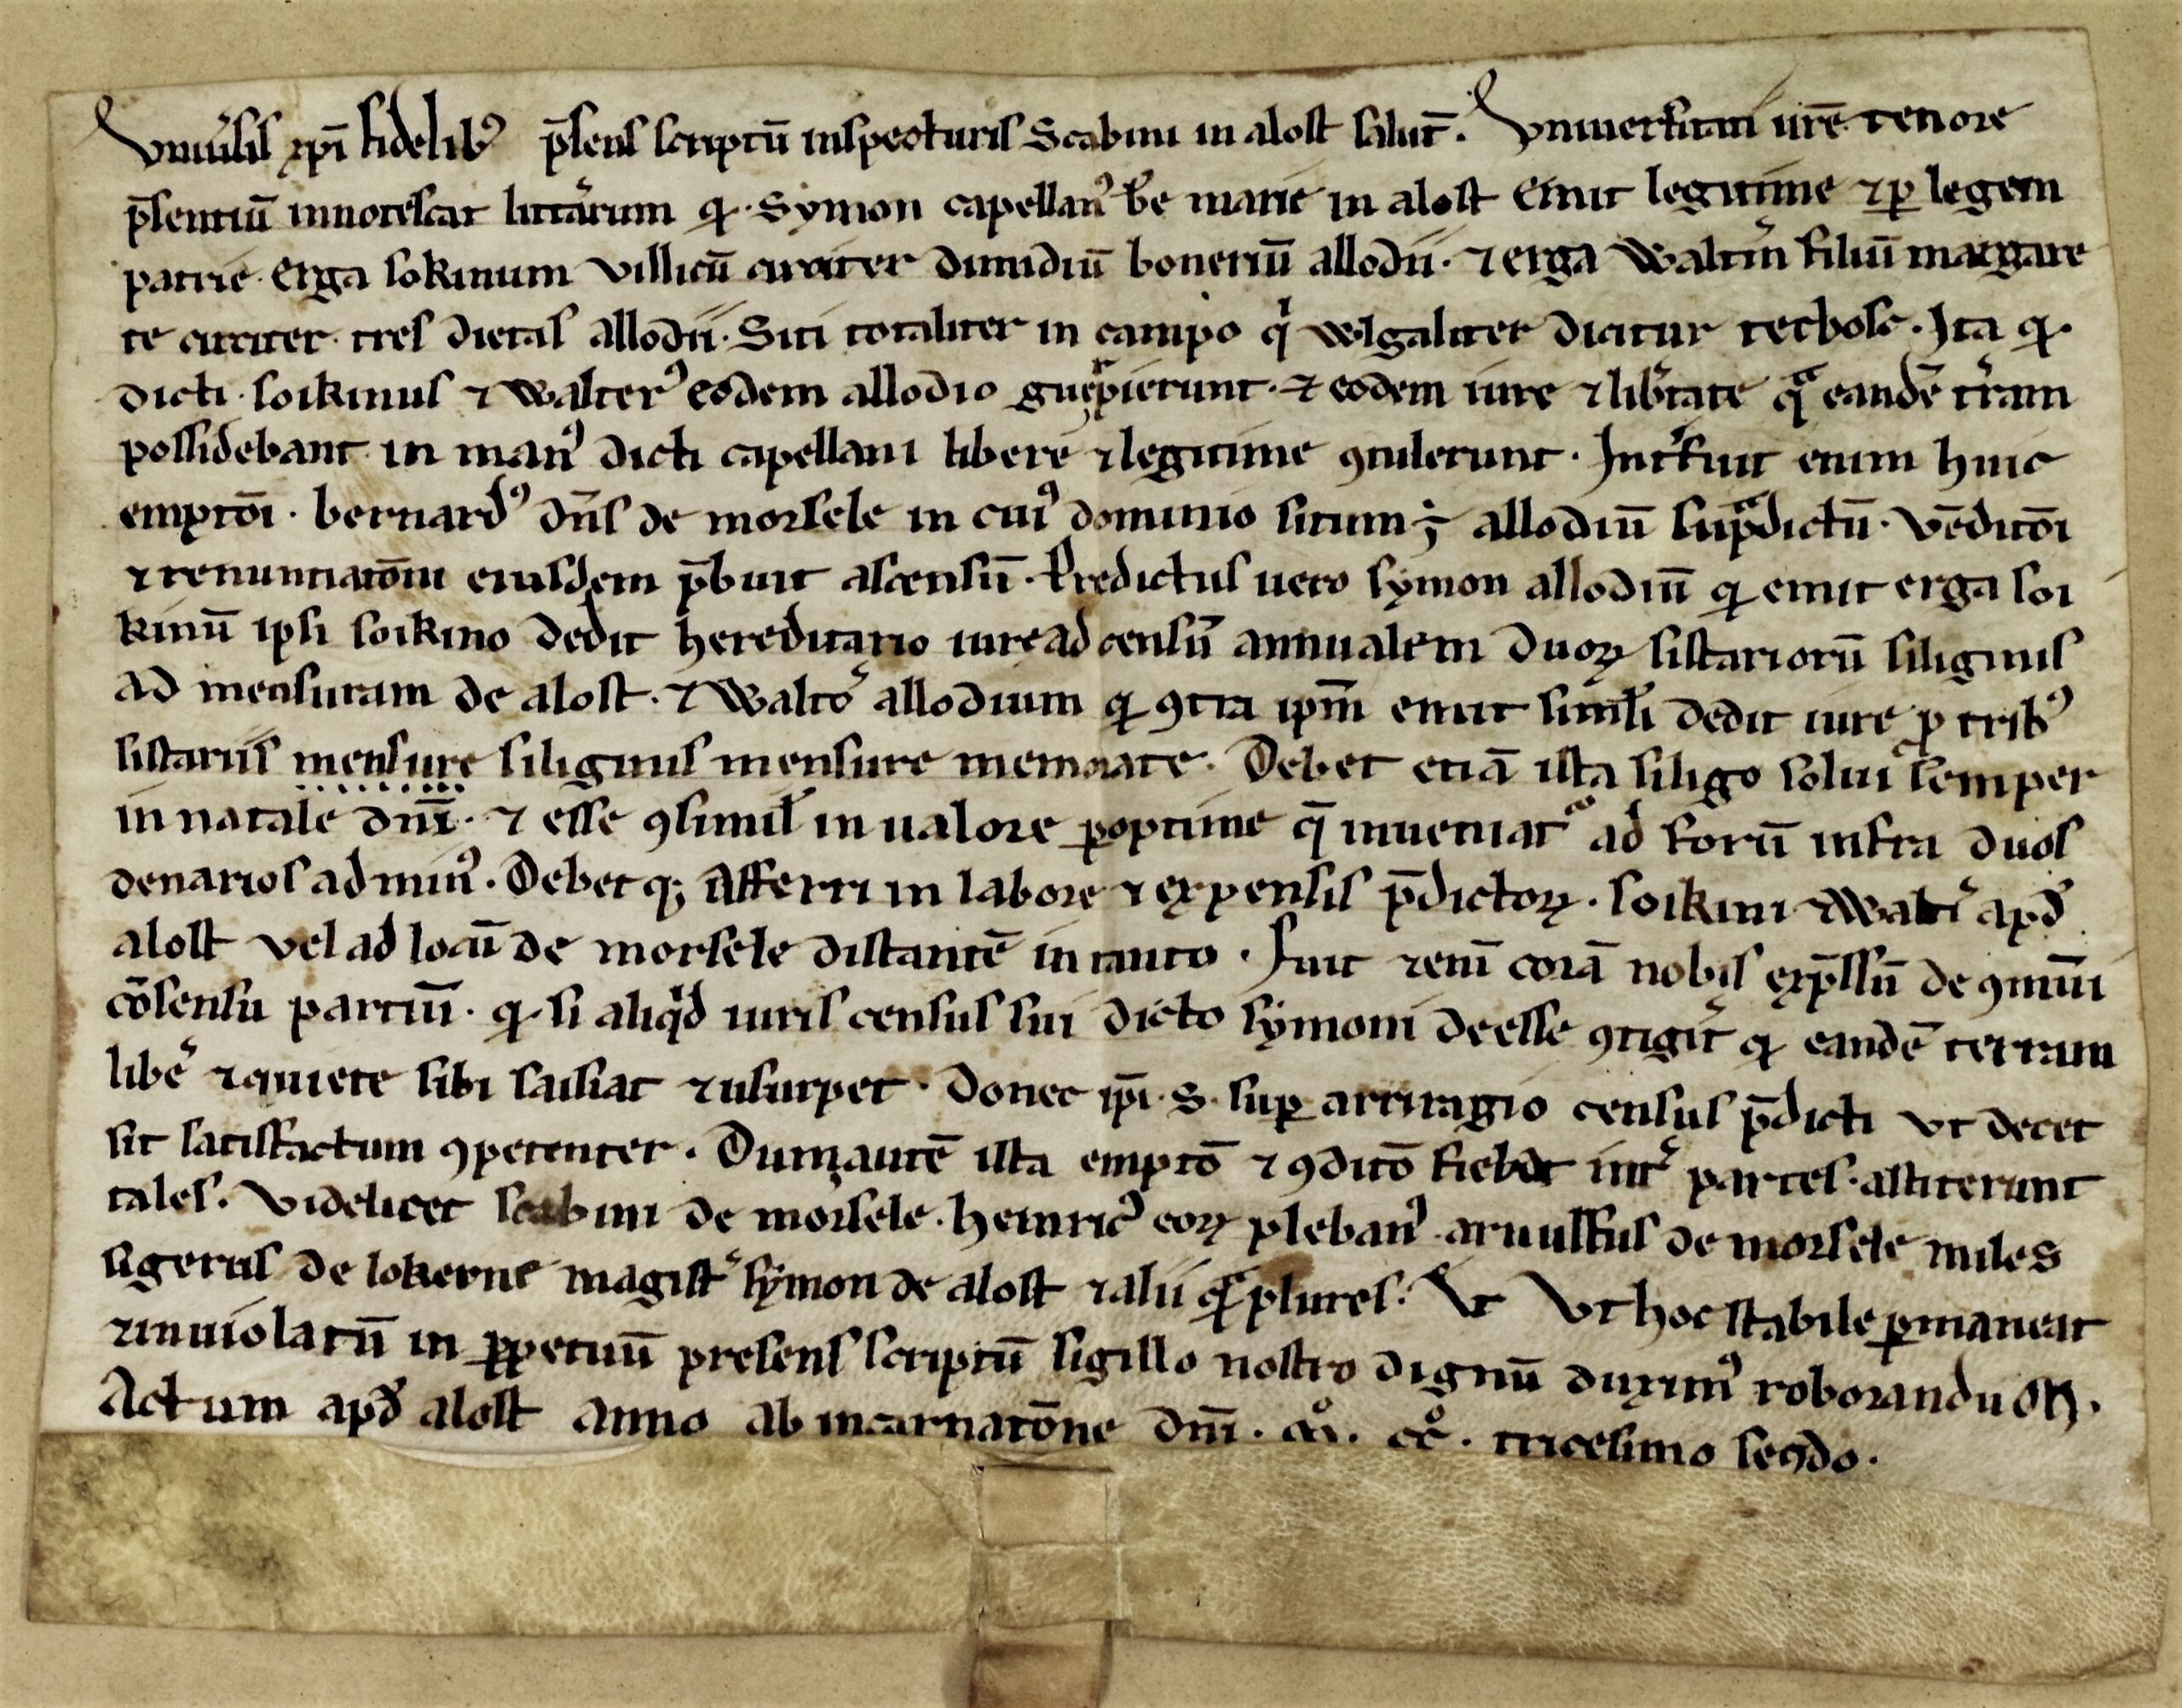 Vniu̾sis xp̄i fidelib⁹ p̄sens scriptū inspecturis Scabini in alost salut̄. Vniuersitati ur̄e tenore
p̄sentiū innotescat litterarum ꝙ· Symon capellan⁹ b̄e marie in alost emit legitime ⁊ ꝑ legem
patrie· erga soKinum villicū circiter dimidiū boneriū allodii· ⁊ erga Walt̾m filiū margare
te circiter· tres dietas allodii· Siti totaliter in campo qͥ wlgaliter dicitur recbosc· Ita ꝙ·
dicti· soiKinus ⁊ Walter⁹ eodem allodio guerpierunt· ⁊ eodem iure ⁊ lib̾tate qᵃ eandē t̾ram
possidebant in man⁹ dicti capellani libere ⁊ legitime ꝯtulerunt· Int̾fuit enim huic
emptōi· bernard⁹ dn̄s de morsele in cui⁹ dominio situm ÷ allodiū supᵃdictū· vēditōi
⁊ renuntiatōni eiusdem p̄buit ascensū· Predictus uero symon allodiū ꝙ emit erga soi
Kinū ipsi soiKino dedit hereditario iure ad censū annualem duoꝝ sistariorū siliginis
ad mensuram de alost· ⁊ Walt̾o allodium ꝙ ꝯtra ipm̄ emit simil̾i dedit iure ꝓ trib⁹
sistariis mensure siliginis mensure memorate· Debet etiā ista siligo solui semper
in natale dn̄i· ⁊ esse ꝯsimil̾ in ualore ꝑoptime q̄ inueniat᷑ ad forū infra duos
denarios ad min⁹· Debet qꝫ afferri in labore ⁊ expensis p̄dictoꝝ· soiKini ⁊ Walt̾i apd̾
alost vel ad locū de morsele distantē in tanto· Fuit ⁊eni̅ corā nobis exp̄ssū de ꝯmuni̅
cōsensu partiū· ꝙ· si aliqͥd iuris census sui dicto symoni deesse ꝯtig̾it ꝙ eandē terram
lib̾e ⁊ quiete sibi saisiat ⁊ usurpet· donec ip̄i· S· suꝑ arriragio census p̄dicti vt decet
sit satisfactum ꝯpetenter· Dum autē ista emptō ⁊ ꝯditō fiebat int̾ partes· astiterunt
tales· videlicet scabini de morsele· heinric⁹ eoꝝ pleban⁹· arnulfus de morsele miles
sigerus de loKerne magist̾ symon de alost ⁊ alii qᵃm plures· Vt Vt hoc stabile ꝑmaneat
⁊ inuiolatū in ꝑpetuū presens scriptū sigillo nostro dignū duxim⁹ roborandum·
Actum apd̾ alost anno ab incarnatōne dn̄i· m̊· cc̊· tricesimo sec̄do·